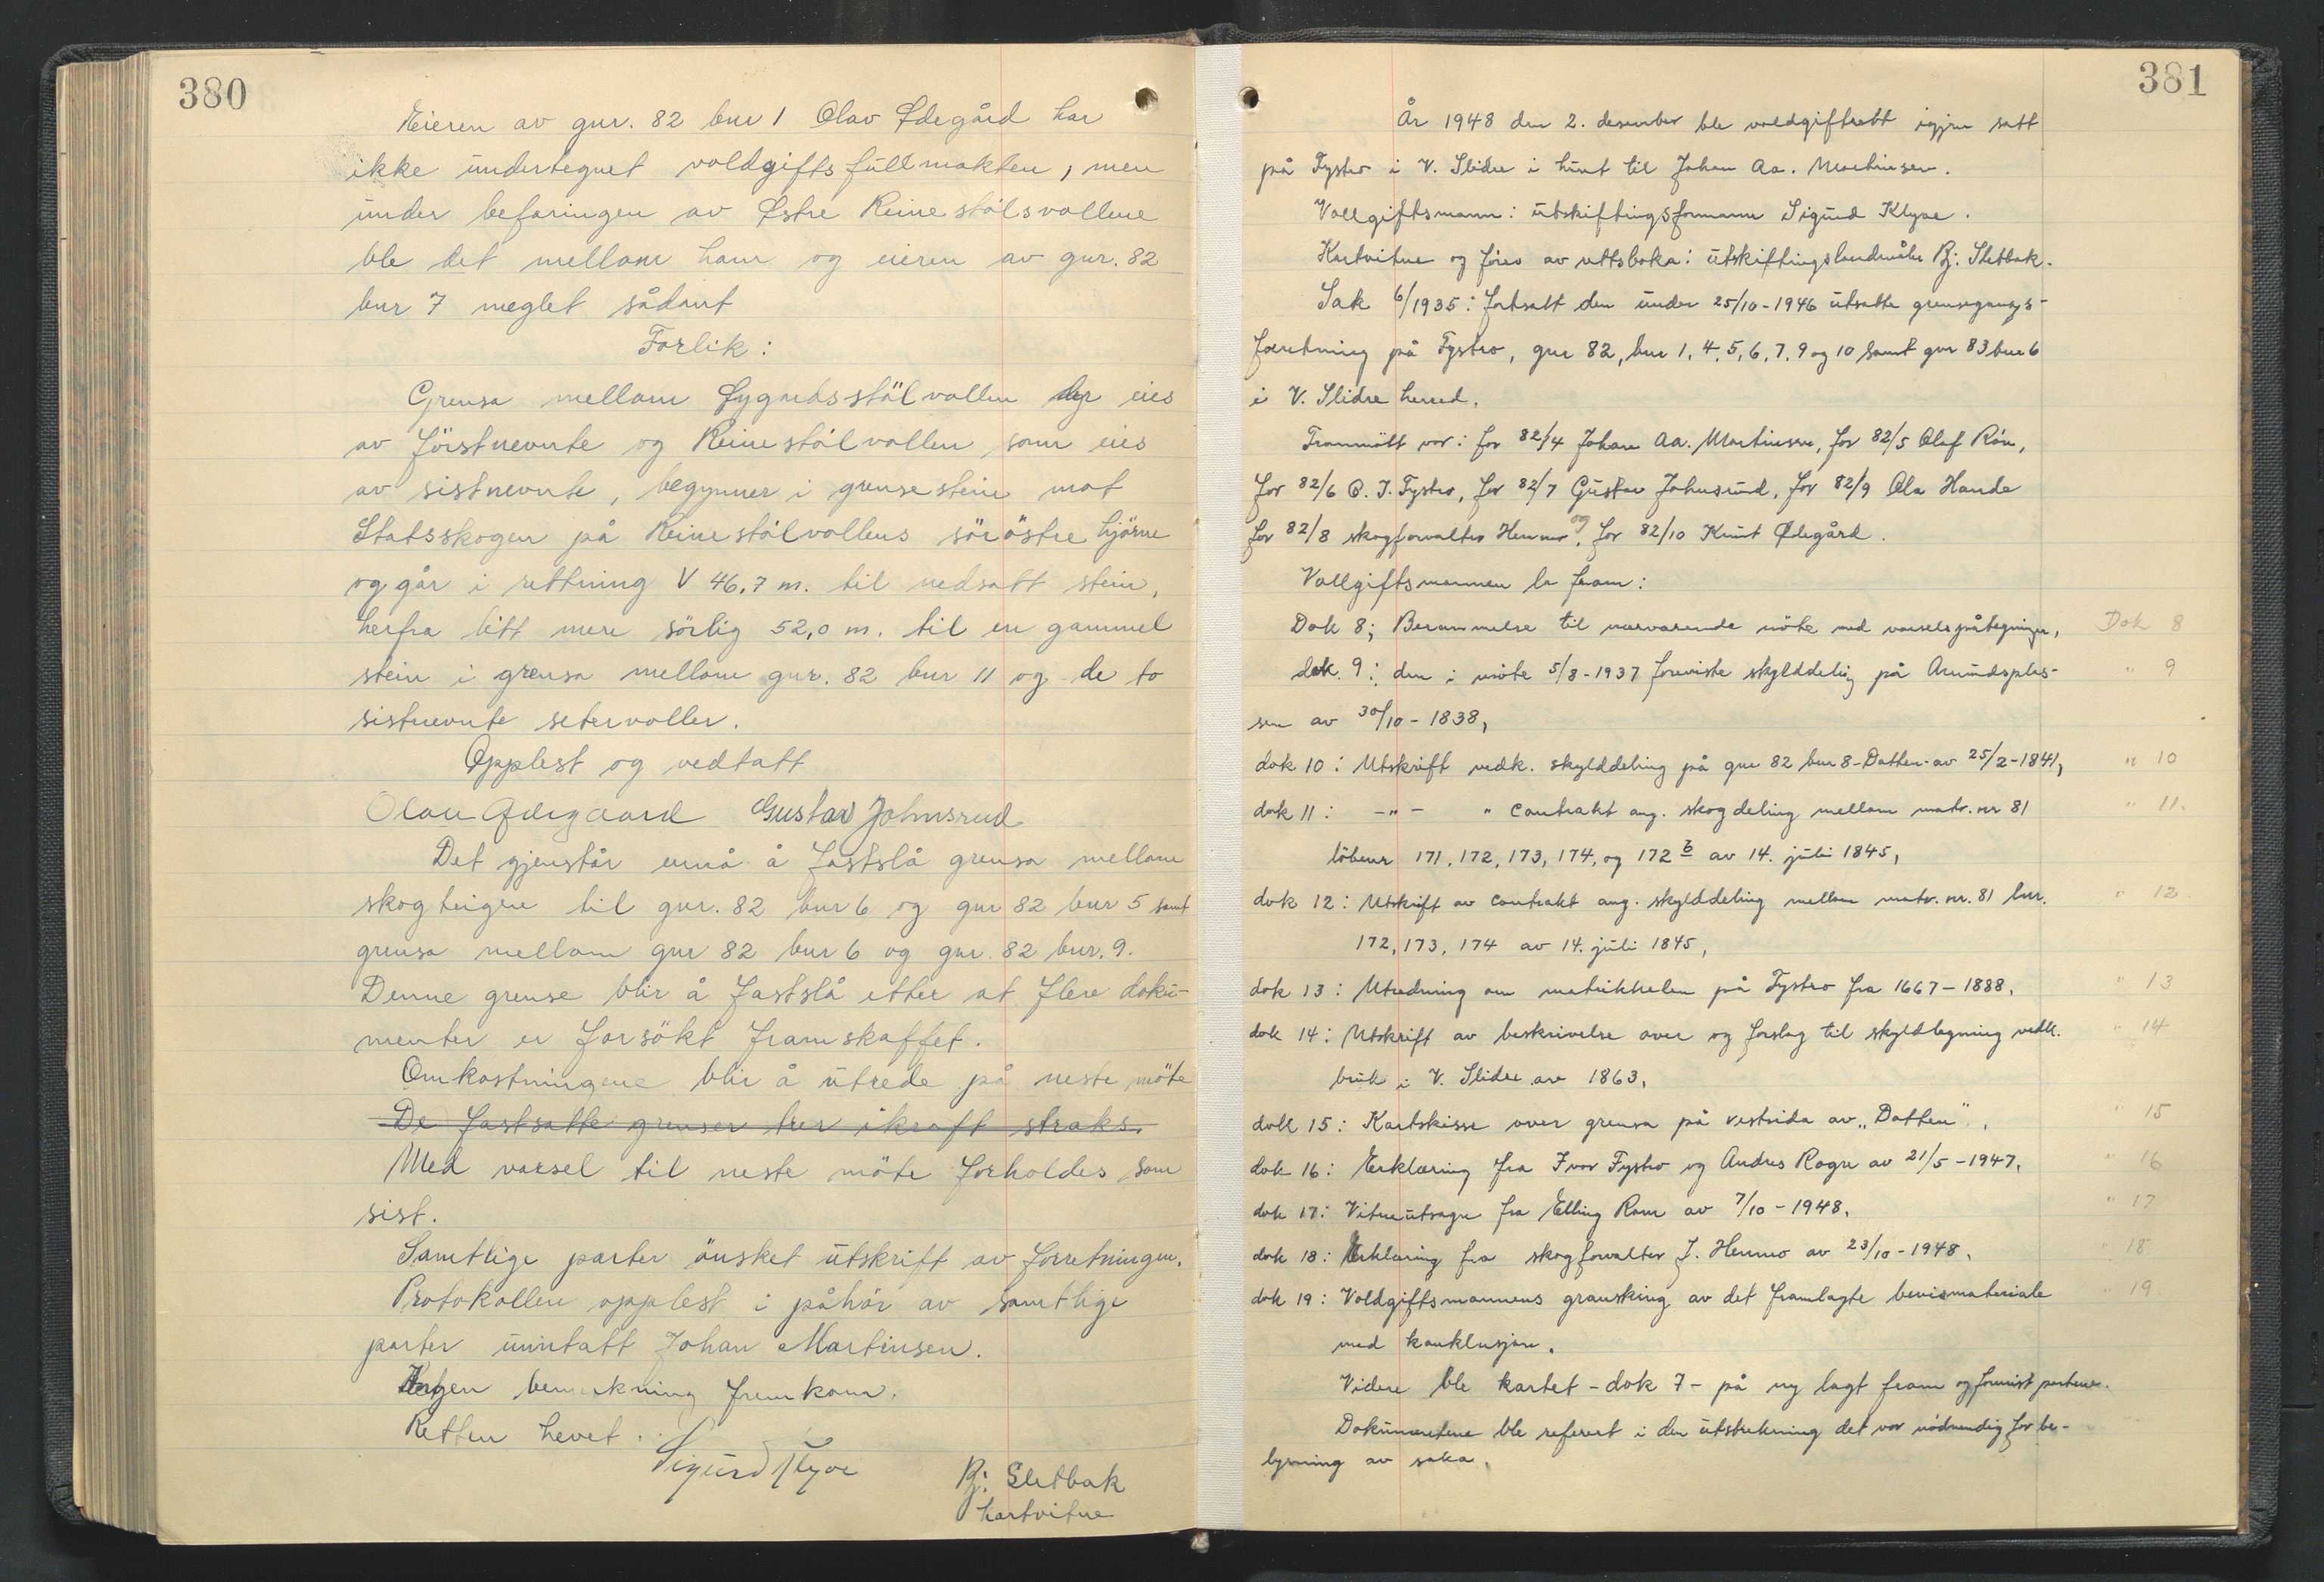 380
Eieren av gnr. 82 bnr 1 Olav Ødegård har
ikke undertegnet voldgiftsfullmakten, men
under befaringen av Østre Reinestölsvollene
ble det mellom ham og eieren av gnr. 82
bnr 7 meglet sådant
Forlik:
Grensa mellom stölvollen der eies
av förstnevnte og Reinestölvollen som eies
av sistnevnte, begynner i grensestein mot
Statsskogen på Reinestölvollens söröstre hjörne
og går i rettning V 46,7 m. til nedsatt stein,
herfra litt mere sörlig 52,0 m. til en gammel
stein i grensa mellom gnr. 82 bnr 11 og de to
sistnevnte setervoller.
Opplest og vedtatt
Olav Ødegaard Gustav Johnsrud
Det gjenstår ennå å fastslå grensa mellom
skogteigene til gnr. 82 bnr 6 og gnr 82 bnr 5 samt
grensa mellom gnr 82 bnr 6 og gnr. 82 bnr. 9.
Denne grense blir å fastslå etter at flere doku-
menter er forsökt framskaffet.
Omkostningene blir å utrede på neste möte
De fastsatte grenser trer ikraft straks.
Med varsel til neste möte forholdes som
sist.
Samtlige parter önsket utskrift av forretningen.
Protokollen opplest i påhör av samtlige
parter unntatt Johan Martinsen.
Ingen bemerkning fremkom.
Retten hevet.
Sigurd Klyve
Bj. Sletbak
kartvitne
381
År 1948 den 2. desember ble voldgiftsrett igjen satt
på Fystro i V. Slidre i huset til Johan Aa. Martinsen.
Vollgiftsmann: utskiftingsformann Sigurd Klyve.
Kartvitne og förer av rettsboka: utskiftingslandmåler Bj. Sletbak.
Sak 6/1935: fortsatt den under 25/10-1946 utsatte grensegangs-
forretning på Fystro, gnr 82, bnr 1, 4, 5, 6, 7, 9 og 10 samt gnr 83 bnr 6
i V. Slidre herred.
Frammött var: for 82/4 Johan Aa. Martinsen, for 82/5 Olaf Rön,
for 82/6 O. I. Fystro, for 82/7 Gustav Johnsrud, for 82/9 Ola Hande
for 82/8 skogforvalter Hennum og for 82/10 Knut Ødegård.
Vollgiftsmannen la fram:
Dok 8: Berammelse til nærværende möte med varselspåtegninger, Dok 8
dok. 9: den i möte 5/8-1937 foreviste skylddeling på Amundsples- " 9
sen av 30/10-1838,
dok 10: Utskrift vedk. skylddeling på gnr 82 bnr 8 - Datten - av 25/2-1841, " 10
dok 11: -"- " Contrakt ang. skogdeling mellom matr. nr 81 " 11.
löbenr 171, 172, 173, 174, og 172 b av 14. juli 1845,
dok 12: Utskrift av Contrakt ang. skylddeling mellom matr. nr. 81 lnr. " 12
172, 173, 174 av 14. juli 1845,
dok 13: Utredning om matrikkelen på Fystro fra 1667-1888, " 13
dok 14: Utskrift av beskrivelse over og forslag til skyldlegning vedk. " 14
bruk i V. Slidre av 1863,
dok 15: Kartskisse over grensa på vestsida av "Datten", " 15
dok 16: Erklæring fra Ivar Fystro og Andres Rogne av 21/5-1947, " 16
dok 17: Vitneutsagn fra Elling Røn av 7/10-1948, " 17
dok 18: Erklæring fra skogforvalter J. Hennum av 23/10-1948, " 18
dok 19: Voldgiftsmannens gransking av det framlagte bevismateriale " 19
med konklusjon.
Videre ble kartet - dok 7 - på ny lagt fram og forevist partene.
Dokumentene ble referert i den utstrekning det var nödvendig for be-
lysning av saka.